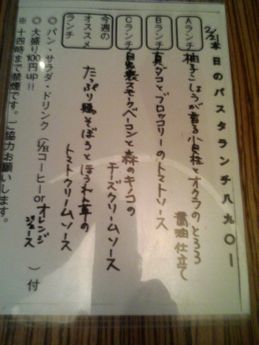 2/21 本日のパスタランチ 八九〇-
Aランチ
柚子こしょうが香る小貝柱とオクラのとろろ
醤油仕立て
Bランチ
真ダコとブロッコリーのトマトソース
Cランチ
自家製スモークベーコンと森のキノコの
チーズクリームソース
今週の
オススメ
ランチ
たっぷり鶏そぼろとほうれん草の
トマトクリームソース
◎ パン・サラダ・ドリンク(コーヒー or オレンジ
ジュース)付
◎ 大盛り100円UP!!
※ 十四時まで禁煙です。ご協力お願いします。